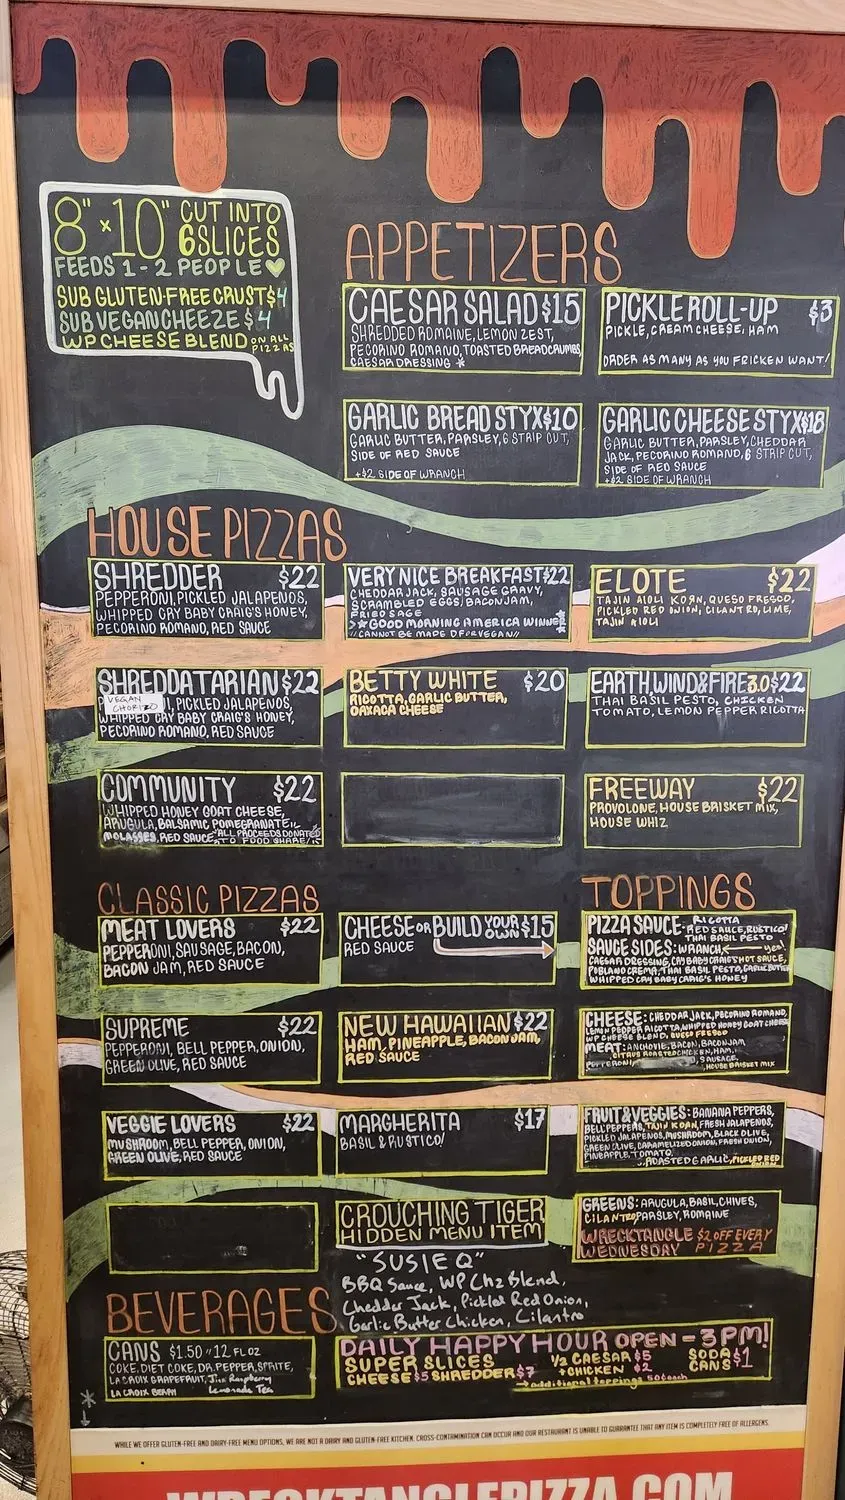 8" x 10" CUT INTO
6 SLICES
FEEDS 1-2 PEOPLE
SUB GLUTEN-FREE CRUST $4
SUB VEGAN CHEEZE $4
WP CHEESE BLEND ON ALL PIZZAS
APPETIZERS
CAESAR SALAD $15
SHREDDED ROMAINE, LEMON ZEST,
PECORINO ROMANO, TOASTED BREADCRUMBS,
CAESAR DRESSING *
PICKLE ROLL-UP $3
PICKLE, CREAM CHEESE, HAM
ORDER AS MANY AS YOU FRICKEN WANT!
GARLIC BREAD STYX $10
GARLIC BUTTER, PARSLEY, 6 STRIP CUT,
SIDE OF RED SAUCE
+$2 SIDE OF WRANCH
GARLIC CHEESE STYX $18
GARLIC BUTTER, PARSLEY, CHEDDAR
JACK, PECORINO ROMANO, 6 STRIP CUT,
SIDE OF RED SAUCE
+$2 SIDE OF WRANCH
HOUSE PIZZAS
SHREDDER $22
PEPPERONI, PICKLED JALAPENOS,
WHIPPED CRY BABY CRAIG'S HONEY,
PECORINO ROMANO, RED SAUCE
VERY NICE BREAKFAST $22
CHEDDAR JACK, SAUSAGE GRAVY,
SCRAMBLED EGGS, BACON JAM,
FRIED SAGE
GOOD MORNING AMERICA WINNER
//CANNOT BE MADE DF OR VEGAN//
ELOTE $22
TAJIN AIOLI KORN, QUESO FRESCO,
PICKLED RED ONION, CILANTRO, LIME,
TAJIN AIOLI
SHREDDATARIAN $22
VEGAN
CHORIZO
PICKLED JALAPENOS,
WHIPPED CRY BABY CRAIG'S HONEY,
PECORINO ROMANO, RED SAUCE
BETTY WHITE $20
RICOTTA, GARLIC BUTTER,
OAXACA CHEESE
EARTH, WIND & FIRE 3.0 $22
THAI BASIL PESTO, CHICKEN
TOMATO, LEMON PEPPER RICOTTA
COMMUNITY $22
WHIPPED HONEY GOAT CHEESE,
ARUGULA, BALSAMIC POMEGRANATE
MOLASSES, RED SAUCE *ALL PROCEEDS DONATED
TO FOOD SHARE
FREEWAY $22
PROVOLONE, HOUSE BRISKET MIX,
HOUSE WHIZ
CLASSIC PIZZAS
MEAT LOVERS $22
PEPPERONI, SAUSAGE, BACON,
BACON JAM, RED SAUCE
CHEESE OR BUILD YOUR OWN $15
RED SAUCE
SUPREME $22
PEPPERONI, BELL PEPPER, ONION,
GREEN OLIVE, RED SAUCE
NEW HAWAIIAN $22
HAM, PINEAPPLE, BACON JAM,
RED SAUCE
VEGGIE LOVERS $22
MUSHROOM, BELL PEPPER, ONION,
GREEN OLIVE, RED SAUCE
MARGHERITA $17
BASIL & RUSTICO!
TOPPINGS
PIZZA SAUCE- RICOTTA
RED SAUCE, RUSTICO!
THAI BASIL PESTO
SAUCE SIDES: WRANCH yes!
CAESAR DRESSING, CRY BABY CRAIG'S HOT SAUCE,
POBLANO CREMA, THAI BASIL PESTO, GARLIC BUTTER
WHIPPED CRY BABY CRAIG'S HONEY
CHEESE: CHEDDAR JACK, PECORINO ROMANO,
LEMON PEPPER RICOTTA, WHIPPED HONEY GOAT CHEESE
WP CHEESE BLEND, QUESO FRESCO
MEAT: ANCHOVIE, BACON, BACON JAM
CITRUS ROASTED CHICKEN, HAM,
PEPPERONI, SAUSAGE,
HOUSE BRISKET MIX
FRUIT & VEGGIES: BANANA PEPPERS,
BELL PEPPERS, TAJIN KORN, FRESH JALAPENOS,
PICKLED JALAPENOS, MUSHROOM, BLACK OLIVE,
GREEN OLIVE, CARAMELIZED ONION, FRESH ONION,
PINEAPPLE, TOMATO,
ROASTED GARLIC, PICKLED RED
ONION
GREENS: ARUGULA, BASIL, CHIVES,
CILANTRO, PARSLEY, ROMAINE
WRECKTANGLE $2 OFF EVERY
WEDNESDAY PIZZA
CROUCHING TIGER
HIDDEN MENU ITEM
"SUSIE Q"
BBQ Sauce, WP Chz Blend,
Chedder Jack, Pickled Red Onion,
Garlic Butter Chicken, Cilantro
BEVERAGES
CANS $1.50 // 12 FL OZ
COKE, DIET COKE, DR. PEPPER, SPRITE,
LA CROIX GRAPEFRUIT, Raspberry
LA CROIX BERRY Lemonade Tea
DAILY HAPPY HOUR OPEN - 3 PM!
SUPER SLICES
CHEESE $5 SHREDDER $7
1/2 CAESAR $5
+CHICKEN $2
SODA
CANS $1
additional toppings 50¢ each
WHILE WE OFFER GLUTEN-FREE AND DAIRY-FREE MENU OPTIONS, WE ARE NOT A DAIRY AND GLUTEN-FREE KITCHEN. CROSS-CONTAMINATION CAN OCCUR AND OUR RESTAURANT IS UNABLE TO GUARANTEE THAT ANY ITEM IS COMPLETELY FREE OF ALLERGENS.
WRECKTANGLEPIZZA.COM